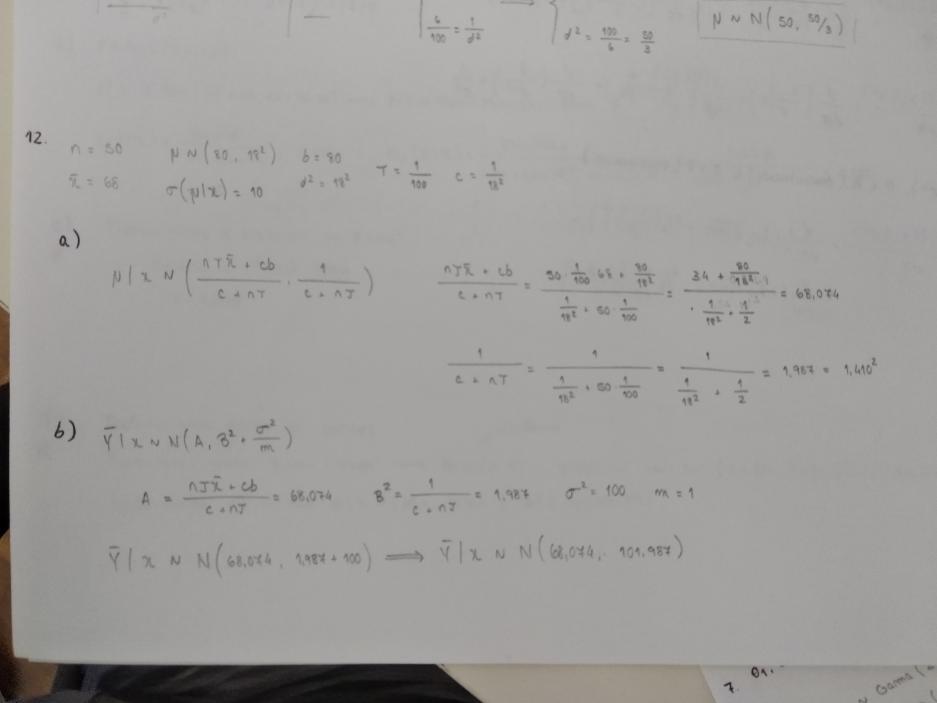 6/100 = 1/d²
d² = 100/6 = 50/3
μ ~ N(50, 50/3)
12.
n = 50 μ ~ N(80, 18²) b = 80
x̄ = 68 σ(μ|x) = 10 d² = 18² T = 1/100 c = 1/18²
a)
μ|x ~ N((nTx̄ + cb)/(c + nT), 1/(c + nT)) (nTx̄ + cb)/(c + nT) = (50·1/100·68 + 80/18²)/(1/18² + 50·1/100) = (34 + 80/18²)/(1/18² + 1/2) = 68,074
1/(c + nT) = 1/(1/18² + 50·1/100) = 1/(1/18² + 1/2) = 1,987 = 1,410²
b) Ȳ|x ~ N(A, B² + σ²/m)
A = (nTx̄ + cb)/(c + nT) = 68,074 B² = 1/(c + nT) = 1,987 σ² = 100 m = 1
Ȳ|x ~ N(68,074, 1,987 + 100) ⟹ Ȳ|x ~ N(68,074, 101,987)
7. 01.
~ Gama(